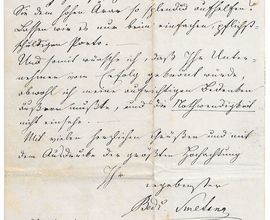 Sie dem hohen Aerar so splendid aushelfen.
Lassen wir es nur beim einfachen, pflicht-
schuldigen Porto.
Und somit wünsche ich, daß Ihr Unter-
nehmen vom Erfolg gekrönt würde,
obwohl ich meine aufrichtigen Bedenken
äußern müßte, und die Nothwendigkeit
nicht einsehe.
Mit vielen herzlichen Grüßen und mit
dem Ausdrucke der größten Hochachtung
Ihr
ergebenster
Smetana